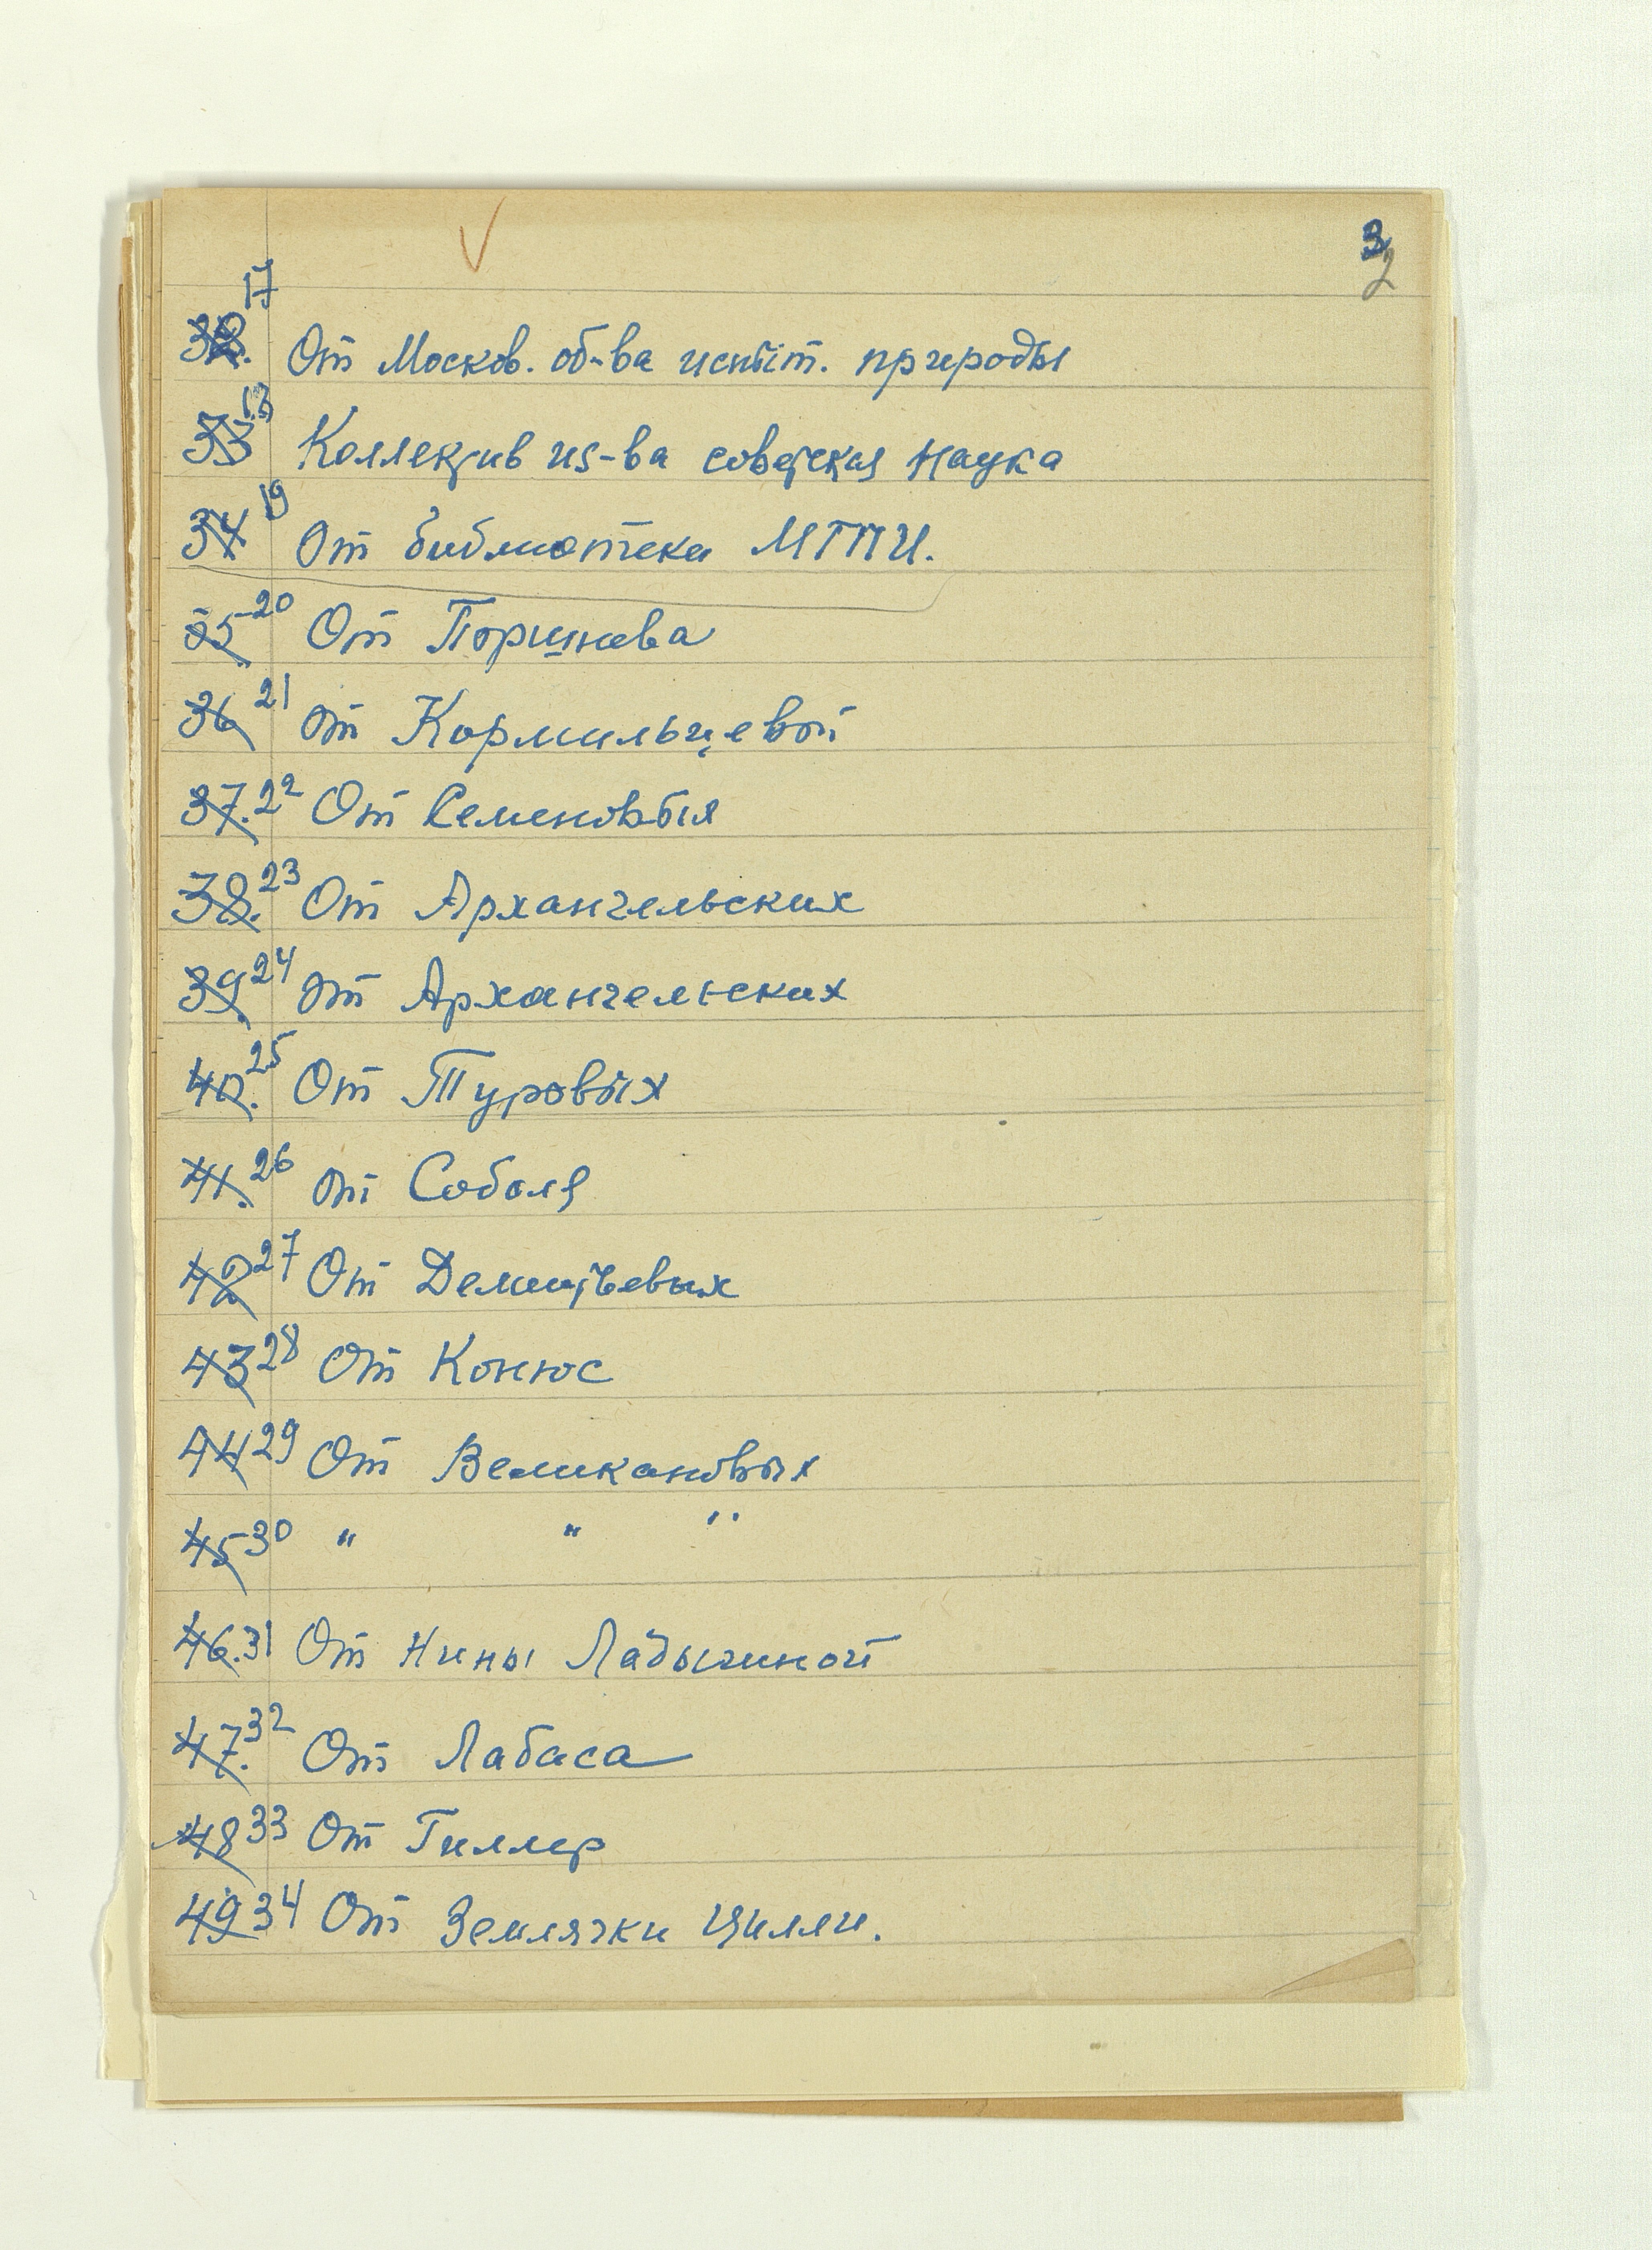 3
2
32. 17 От Москов. об-ва испыт. природы
33 18 Коллектив из-ва советская наука
34 19 От библиотеки МГПИ.
35 20 От Поршнева
36 21 От Кормильцевой
37. 22 От Семеновыя
38. 23 От Архангельских
39. 24 От Архангельских
40. 25 От Туровых
41. 26 От Соболя
42 27 От Дементьевых
43 28 От Конюс
44 29 От Великановых
45 30 " " "
46. 31 От Нины Ладыгиной
47. 32 От Лабаса
48 33 От Гиллер
49 34 От Землячки Цилли.